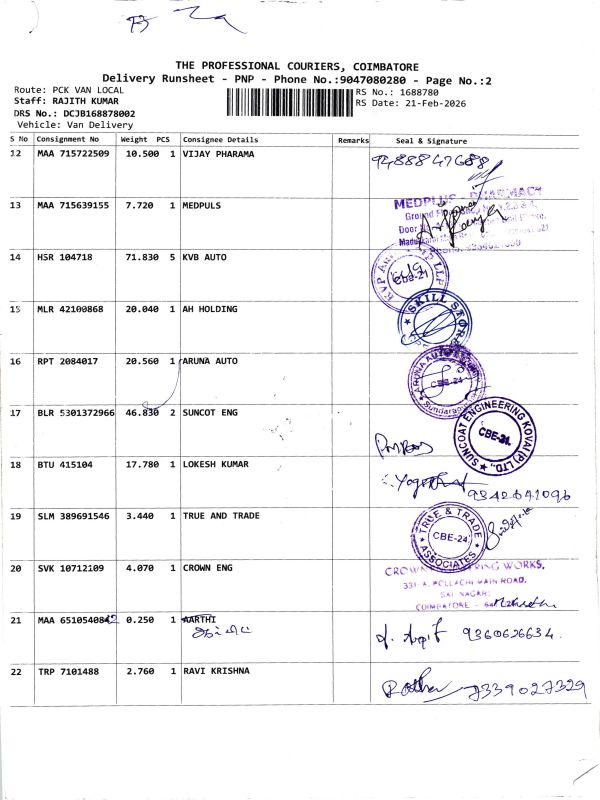 THE PROFESSIONAL COURIERS, COIMBATORE
Delivery Runsheet - PNP - Phone No.:9047080280 - Page No.:2
Route: PCK VAN LOCAL
Staff: RAJITH KUMAR
DRS No.: DCJB168878002
Vehicle: Van Delivery
RS No.: 1688780
RS Date: 21-Feb-2026
S No Consignment No Weight PCS Consignee Details Remarks Seal & Signature
12 MAA 715722509 10.500 1 VIJAY PHARAMA
13 MAA 715639155 7.720 1 MEDPULS
MEDPLUS PHARMACY
14 HSR 104718 71.830 5 KVB AUTO
CBE-21
15 MLR 42100868 20.040 1 AH HOLDING
SKILL STORE
16 RPT 2084017 20.560 1 ARUNA AUTO
ARUNA AUTO
CBE-24
17 BLR 5301372966 46.830 2 SUNCOT ENG
SUNCOAT ENGINEERING KOVAI (P) LTD.,
CBE-31.
18 BTU 415104 17.780 1 LOKESH KUMAR
9342641096
19 SLM 389691546 3.440 1 TRUE AND TRADE
TRUE & TRADE ASSOCIATES
CBE-24
20 SVK 10712109 4.070 1 CROWN ENG
CROWN WORKS,
331-A, POLLACHI MAIN ROAD,
SAI NAGAR,
COIMBATORE -
21 MAA 651054084 0.250 1 AARTHI
9360626634
22 TRP 7101488 2.760 1 RAVI KRISHNA
7339027329